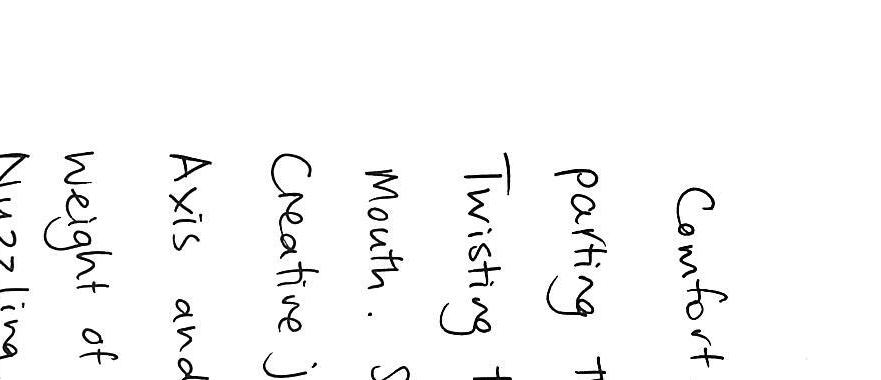 Comfort
parting
Twisting
Mouth.
Creative
Axis and
Weight of
Nuzzling